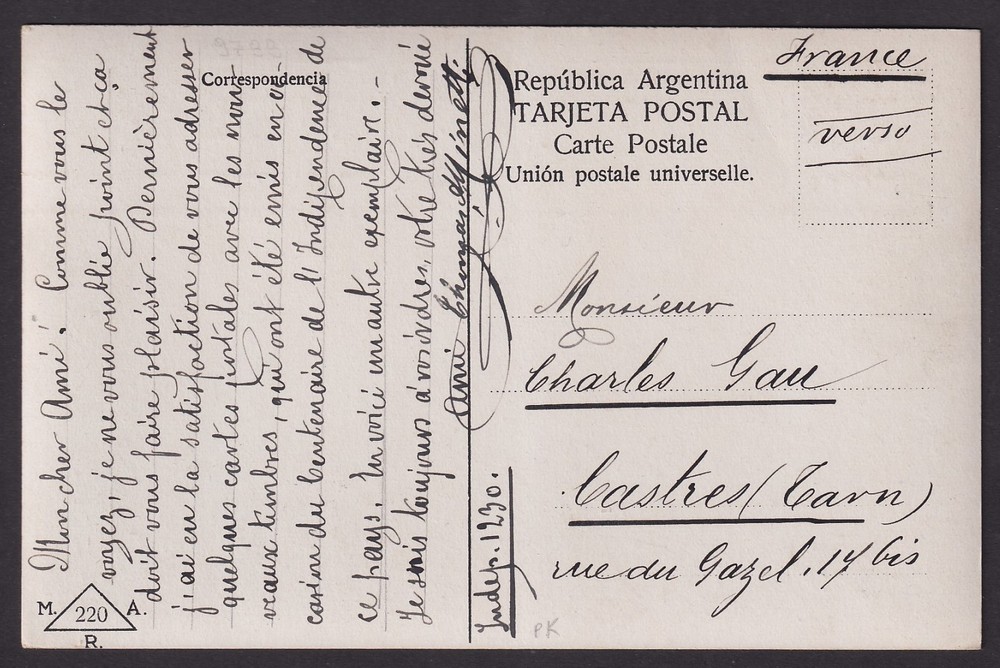 Correspondencia
Mon cher Ami. Comme vous le
voyez, je ne vous oublie point et ça
doit vous faire plaisir. Dernièrement
j'ai eu la satisfaction de vous adresser
quelques cartes postales avec les nou-
veaux timbres, qui ont été emis en oc-
casion du Centenaire de l'Indépendence de
ce pays. En voici un autre exemplaire.-
Je suis toujours à vos ordres, votre très dévoué
ami
Indep. 1230.
República Argentina
TARJETA POSTAL
Carte Postale
Unión postale universelle.
France
verso
Monsieur
Charles Gau
Castres (Tarn)
rue du Gazel, 14 bis
M. 220 A.
R.
PK